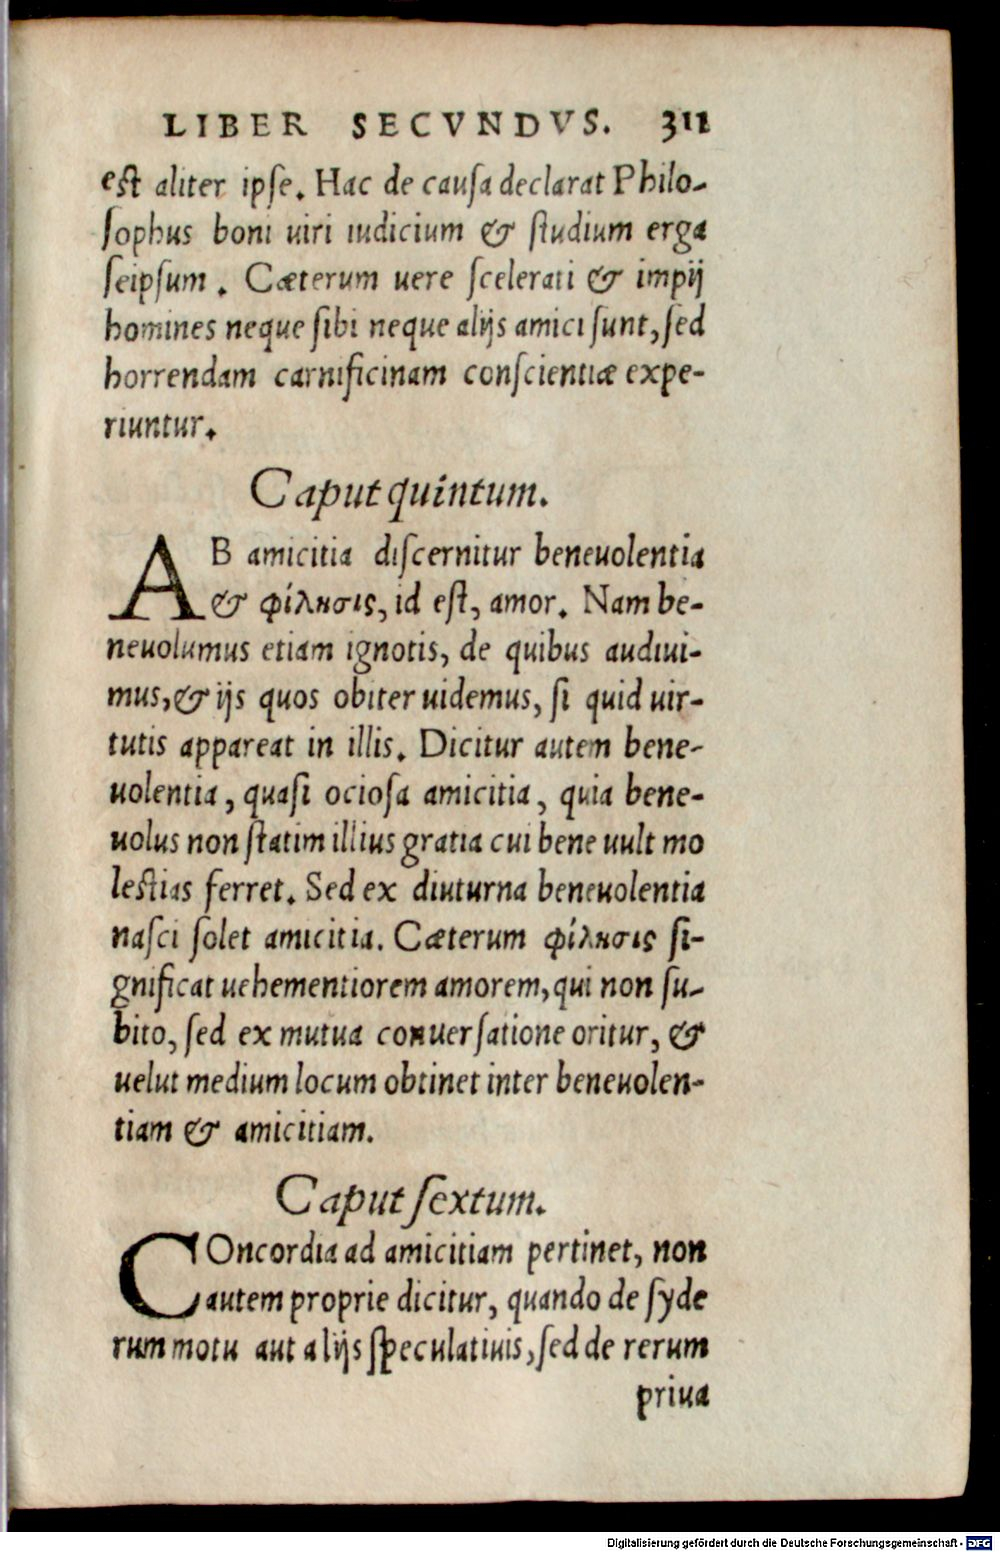 LIBER SECVNDVS. 311
est aliter ipſe. Hac de cauſa declarat Philo-
ſophus boni uiri iudicium & ſtudium erga
ſeipſum. Cæterum uere ſcelerati & impij
homines neque ſibi neque alijs amici ſunt, ſed
horrendam carnificinam conſcientiæ expe-
riuntur.
Caput quintum.
AB amicitia diſcernitur beneuolentia
& φίλησις, id eſt, amor. Nam be-
neuolumus etiam ignotis, de quibus audiui-
mus, & ijs quos obiter uidemus, ſi quid uir-
tutis appareat in illis. Dicitur autem bene-
uolentia, quaſi ocioſa amicitia, quia bene-
uolus non ſtatim illius gratia cui bene uult mo
leſtias ferret. Sed ex diuturna beneuolentia
naſci ſolet amicitia. Cæterum φίλησις ſi-
gnificat uehementiorem amorem, qui non ſu-
bito, ſed ex mutua conuerſatione oritur, &
uelut medium locum obtinet inter beneuolen-
tiam & amicitiam.
Caput ſextum.
COncordia ad amicitiam pertinet, non
autem proprie dicitur, quando de ſyde
rum motu aut alijs ſpeculatiuis, ſed de rerum
priua
Digitalisierung gefördert durch die Deutsche Forschungsgemeinschaft - DFG